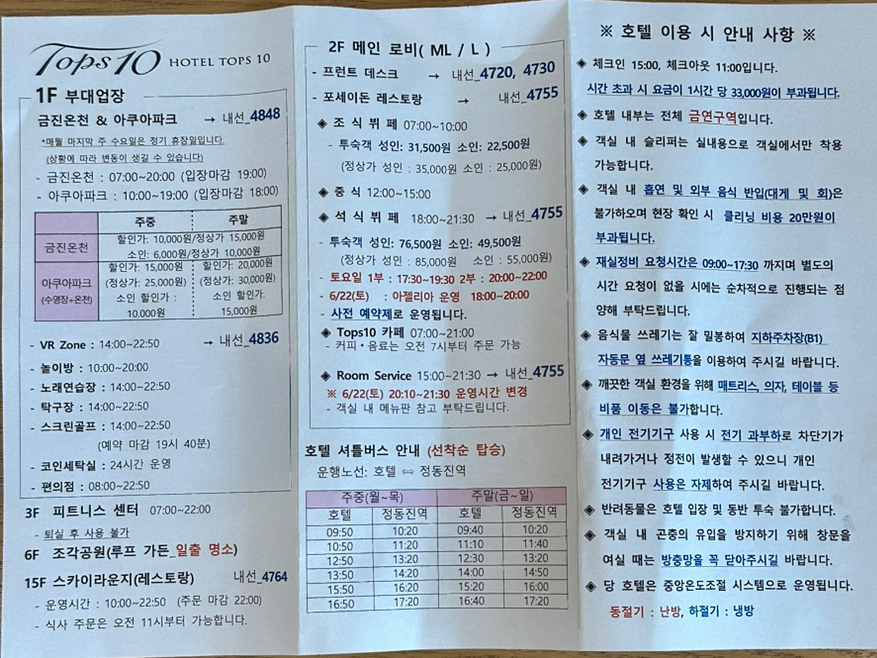 Tops 10 HOTEL TOPS 10
1F 부대업장
금진온천 & 아쿠아파크 → 내선_4848
*매월 마지막 주 수요일은 정기 휴장일입니다.
(상황에 따라 변동이 생길 수 있습니다)
- 금진온천 : 07:00~20:00 (입장마감 19:00)
- 아쿠아파크 : 10:00~19:00 (입장마감 18:00)
주중 주말
금진온천 할인가: 10,000원/정상가 15,000원
소인: 6,000원/정상가 10,000원
아쿠아파크 할인가: 15,000원 할인가: 20,000원
(수영장+온천) (정상가: 25,000원) (정상가: 30,000원)
소인 할인가 : 소인 할인가:
10,000원 15,000원
- VR Zone : 14:00~22:50 → 내선_4836
- 놀이방 : 10:00~20:00
- 노래연습장 : 14:00~22:50
- 탁구장 : 14:00~22:50
- 스크린골프 : 14:00~22:50
(예약 마감 19시 40분)
- 코인세탁실 : 24시간 운영
- 편의점 : 08:00~22:50
3F 피트니스 센터 07:00~22:00
- 퇴실 후 사용 불가
6F 조각공원(루프 가든_일출 명소)
15F 스카이라운지(레스토랑) 내선_4764
- 운영시간 : 10:00~22:50 (주문 마감 22:00)
- 식사 주문은 오전 11시부터 가능합니다.
2F 메인 로비( ML / L )
- 프런트 데스크 → 내선_4720, 4730
- 포세이돈 레스토랑 → 내선_4755
◈ 조 식 뷔 페 07:00~10:00
- 투숙객 성인: 31,500원 소인: 22,500원
(정상가 성인 : 35,000원 소인 : 25,000원)
◈ 중 식 12:00~15:00
◈ 석 식 뷔 페 18:00~21:30 → 내선_4755
- 투숙객 성인: 76,500원 소인: 49,500원
(정상가 성인 : 85,000원 소인 : 55,000원)
- 토요일 1부 : 17:30~19:30 2부 : 20:00~22:00
- 6/22(토) : 아젤리아 운영 18:00~20:00
- 사전 예약제로 운영됩니다.
◈ Tops10 카페 07:00~21:00
- 커피·음료는 오전 7시부터 주문 가능
◈ Room Service 15:00~21:30 → 내선_4755
※ 6/22(토) 20:10~21:30 운영시간 변경
- 객실 내 메뉴판 참고 부탁드립니다.
호텔 셔틀버스 안내 (선착순 탑승)
운행노선: 호텔 ⇔ 정동진역
주중(월~목) 주말(금~일)
호텔 정동진역 호텔 정동진역
09:50 10:20 09:40 10:20
10:50 11:20 11:10 11:40
12:50 13:20 12:30 13:20
13:50 14:20 14:00 14:50
15:50 16:20 15:20 16:00
16:50 17:20 16:40 17:20
※ 호텔 이용 시 안내 사항 ※
◈ 체크인 15:00, 체크아웃 11:00입니다.
시간 초과 시 요금이 1시간 당 33,000원이 부과됩니다.
◈ 호텔 내부는 전체 금연구역입니다.
◈ 객실 내 슬리퍼는 실내용으로 객실에서만 착용
가능합니다.
◈ 객실 내 흡연 및 외부 음식 반입(대게 및 회)은
불가하오며 현장 확인 시 클리닝 비용 20만원이
부과됩니다.
◈ 재실정비 요청시간은 09:00~17:30 까지며 별도의
시간 요청이 없을 시에는 순차적으로 진행되는 점
양해 부탁드립니다.
◈ 음식물 쓰레기는 잘 밀봉하여 지하주차장(B1)
자동문 옆 쓰레기통을 이용하여 주시길 바랍니다.
◈ 깨끗한 객실 환경을 위해 매트리스, 의자, 테이블 등
비품 이동은 불가합니다.
◈ 개인 전기기구 사용 시 전기 과부하로 차단기가
내려가거나 정전이 발생할 수 있으니 개인
전기기구 사용은 자제하여 주시길 바랍니다.
◈ 반려동물은 호텔 입장 및 동반 투숙 불가합니다.
◈ 객실 내 곤충의 유입을 방지하기 위해 창문을
여실 때는 방충망을 꼭 닫아주시길 바랍니다.
◈ 당 호텔은 중앙온도조절 시스템으로 운영됩니다.
동절기 : 난방, 하절기 : 냉방